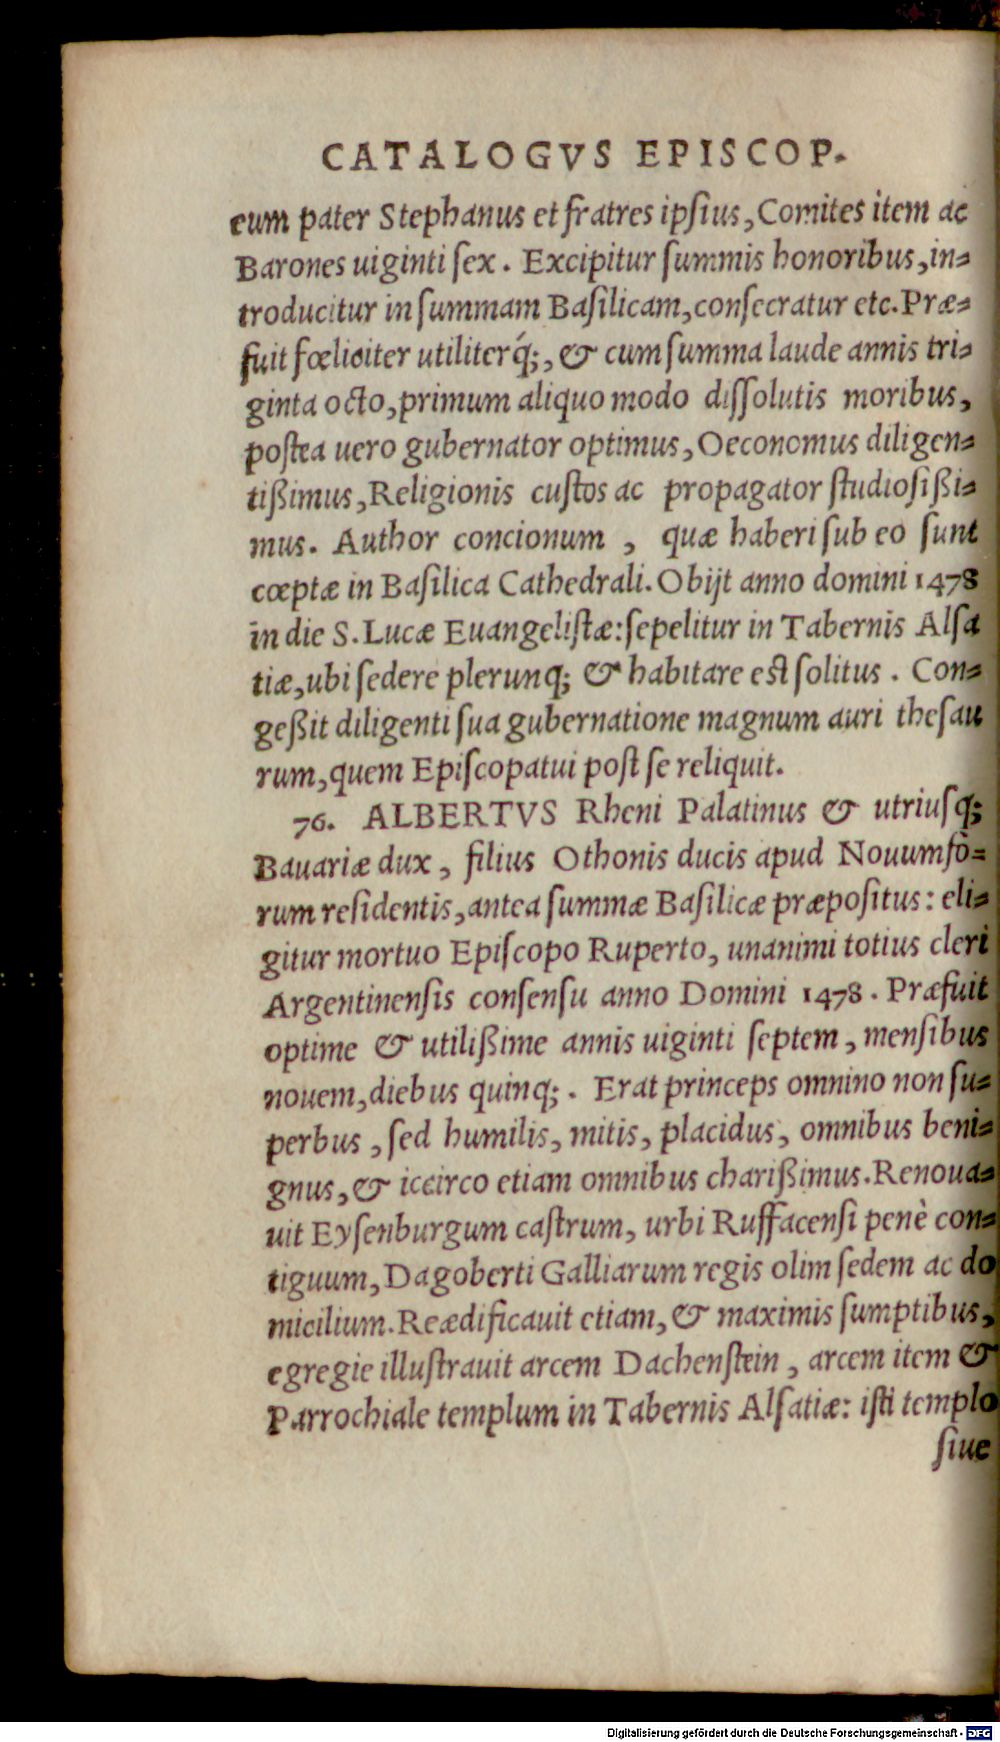 CATALOGVS EPISCOP.
eum pater Stephanus et fratres ipſius, Comites item ac
Barones uiginti ſex. Excipitur ſummis honoribus, in-
troducitur in ſummam Baſilicam, conſecratur etc. Præ-
fuit fœliciter utiliterq́;, & cum ſumma laude annis tri-
ginta octo, primum aliquo modo diſſolutis moribus,
poſtea uero gubernator optimus, Oeconomus diligen-
tißimus, Religionis cuſtos ac propagator ſtudioſißi-
mus. Author concionum, quæ haberi ſub eo ſunt
cœptæ in Baſilica Cathedrali. Obijt anno domini 1478
in die S. Lucæ Euangeliſtæ: ſepelitur in Tabernis Alſa
tiæ, ubi ſedere plerunq; & habitare eſt ſolitus. Con-
geßit diligenti ſua gubernatione magnum auri theſau
rum, quem Epiſcopatui poſt ſe reliquit.
76. ALBERTVS Rheni Palatinus & utriuſq;
Bauariæ dux, filius Othonis ducis apud Nouumfo-
rum reſidentis, antea ſummæ Baſilicæ præpoſitus: eli-
gitur mortuo Epiſcopo Ruperto, unanimi totius cleri
Argentinenſis conſenſu anno Domini 1478. Præfuit
optime & utilißime annis uiginti ſeptem, menſibus
nouem, diebus quinq;. Erat princeps omnino non ſu-
perbus, ſed humilis, mitis, placidus, omnibus beni-
gnus, & iccirco etiam omnibus charißimus. Renoua-
uit Eyſenburgum caſtrum, urbi Ruffacenſi penè con-
tiguum, Dagoberti Galliarum regis olim ſedem ac do
micilium. Reædificauit etiam, & maximis ſumptibus,
egregie illuſtrauit arcem Dachenſtein, arcem item &
Parrochiale templum in Tabernis Alſatiæ: iſti templo
ſiue
Digitalisierung gefördert durch die Deutsche Forschungsgemeinschaft - DFG